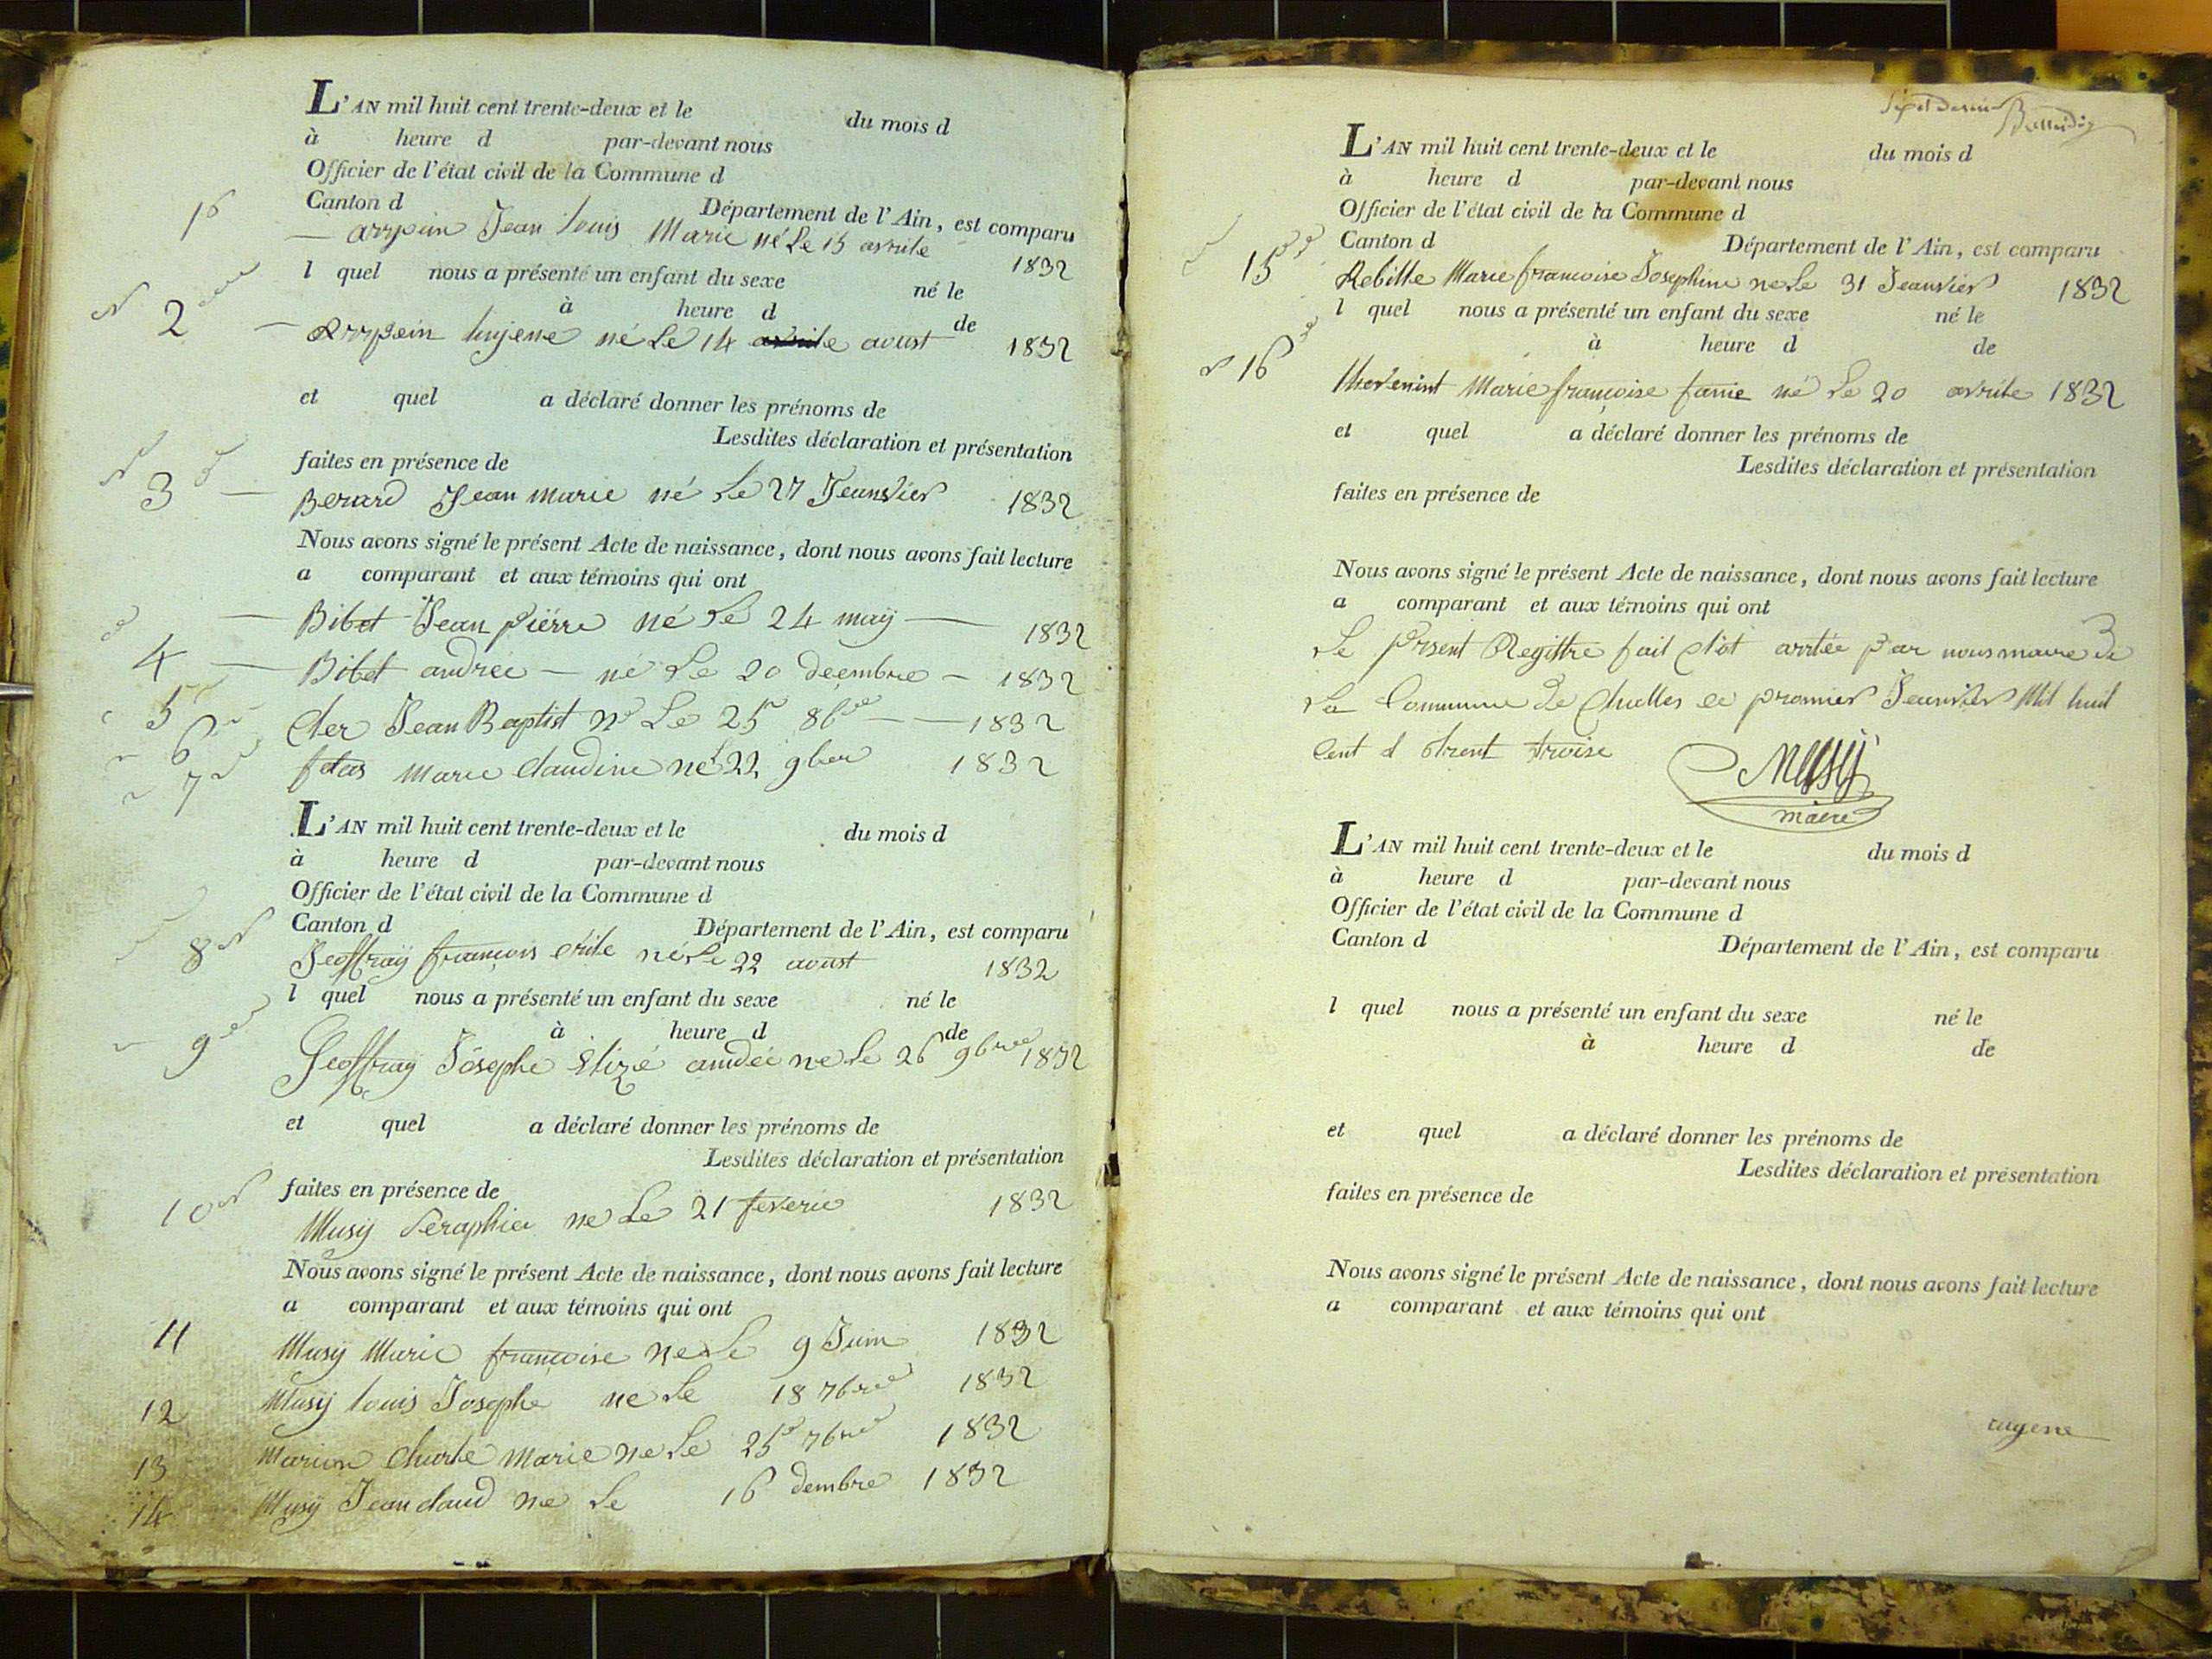 L'AN mil huit cent trente-deux et le du mois d
à heure d par-devant nous
Officier de l'état civil de la Commune d
Canton d Département de l'Ain, est comparu
1 arrpin Jean louis Marie né Le 15 avrile 1832
l quel nous a présenté un enfant du sexe né le
à heure d de
2 Arrpein né Le 14 avrile avust 1832
et quel a déclaré donner les prénoms de
Lesdites déclaration et présentation
faites en présence de
3 Berard Jean marie né Le 27 Jeanvier 1832
Nous avons signé le présent Acte de naissance, dont nous avons fait lecture
a comparant et aux témoins qui ont
Bibet Jean pierre né Le 24 maÿ 1832
4 Bibet andrée né Le 20 decembre 1832
5 Cler Jean Baptist né Le 25 8bre 1832
6 7 Marie claudine né 22 9bre 1832
L'AN mil huit cent trente-deux et le du mois d
à heure d par-devant nous
Officier de l'état civil de la Commune d
Canton d Département de l'Ain, est comparu
8 Jeoffraÿ françois né Le 22 avust 1832
l quel nous a présenté un enfant du sexe né le
à heure d de
9 Geoffray Josephe né Le 26 9bre 1832
et quel a déclaré donner les prénoms de
Lesdites déclaration et présentation
faites en présence de
10 Musÿ Seraphie né Le 21 feverie 1832
Nous avons signé le présent Acte de naissance, dont nous avons fait lecture
a comparant et aux témoins qui ont
11 Musÿ Marie françoise né Le 9 Juin 1832
12 Musÿ louis Josephe né Le 18 7bre 1832
13 Marion Charle Marie né Le 25 7bre 1832
14 Musÿ Jean claud né Le 16 dembre 1832
L'AN mil huit cent trente-deux et le du mois d
à heure d par-devant nous
Officier de l'état civil de la Commune d
Canton d Département de l'Ain, est comparu
15 Rebille Marie francoise Josephine né Le 31 Jeanvier 1832
l quel nous a présenté un enfant du sexe né le
à heure d de
16 thevenint Marie françoise fanie né Le 20 avrile 1832
et quel a déclaré donner les prénoms de
Lesdites déclaration et présentation
faites en présence de
Nous avons signé le présent Acte de naissance, dont nous avons fait lecture
a comparant et aux témoins qui ont
Le prsent Registre fait clôt arrtée par nous maire de
La Commune de Ce promier Jeanvier Mil huit
Cent trent troise
Musÿ
maire
L'AN mil huit cent trente-deux et le du mois d
à heure d par-devant nous
Officier de l'état civil de la Commune d
Canton d Département de l'Ain, est comparu
l quel nous a présenté un enfant du sexe né le
à heure d de
et quel a déclaré donner les prénoms de
Lesdites déclaration et présentation
faites en présence de
Nous avons signé le présent Acte de naissance, dont nous avons fait lecture
a comparant et aux témoins qui ont
eugene